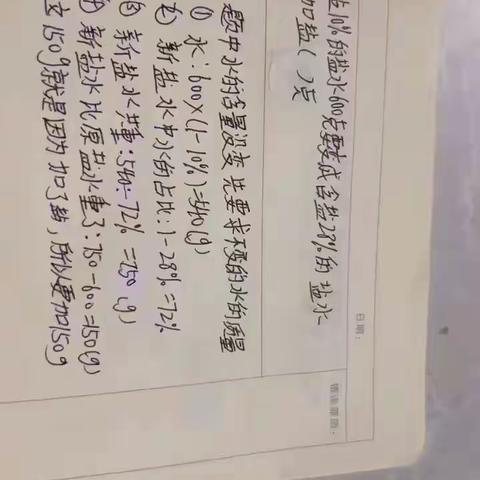 10%的盐水600克要变成含盐28%的盐水
加盐( )克
题中水的含量没变 先要求不变的水的质量
① 水:600×(1-10%)=540(g)
② 新盐水中水的占比:1-28%=72%
③ 新盐水共重:540÷72%=750(g)
新盐水比原盐水重了:750-600=150(g)
这150g就是因为加了盐,所以要加150g
日期:
错误原因: